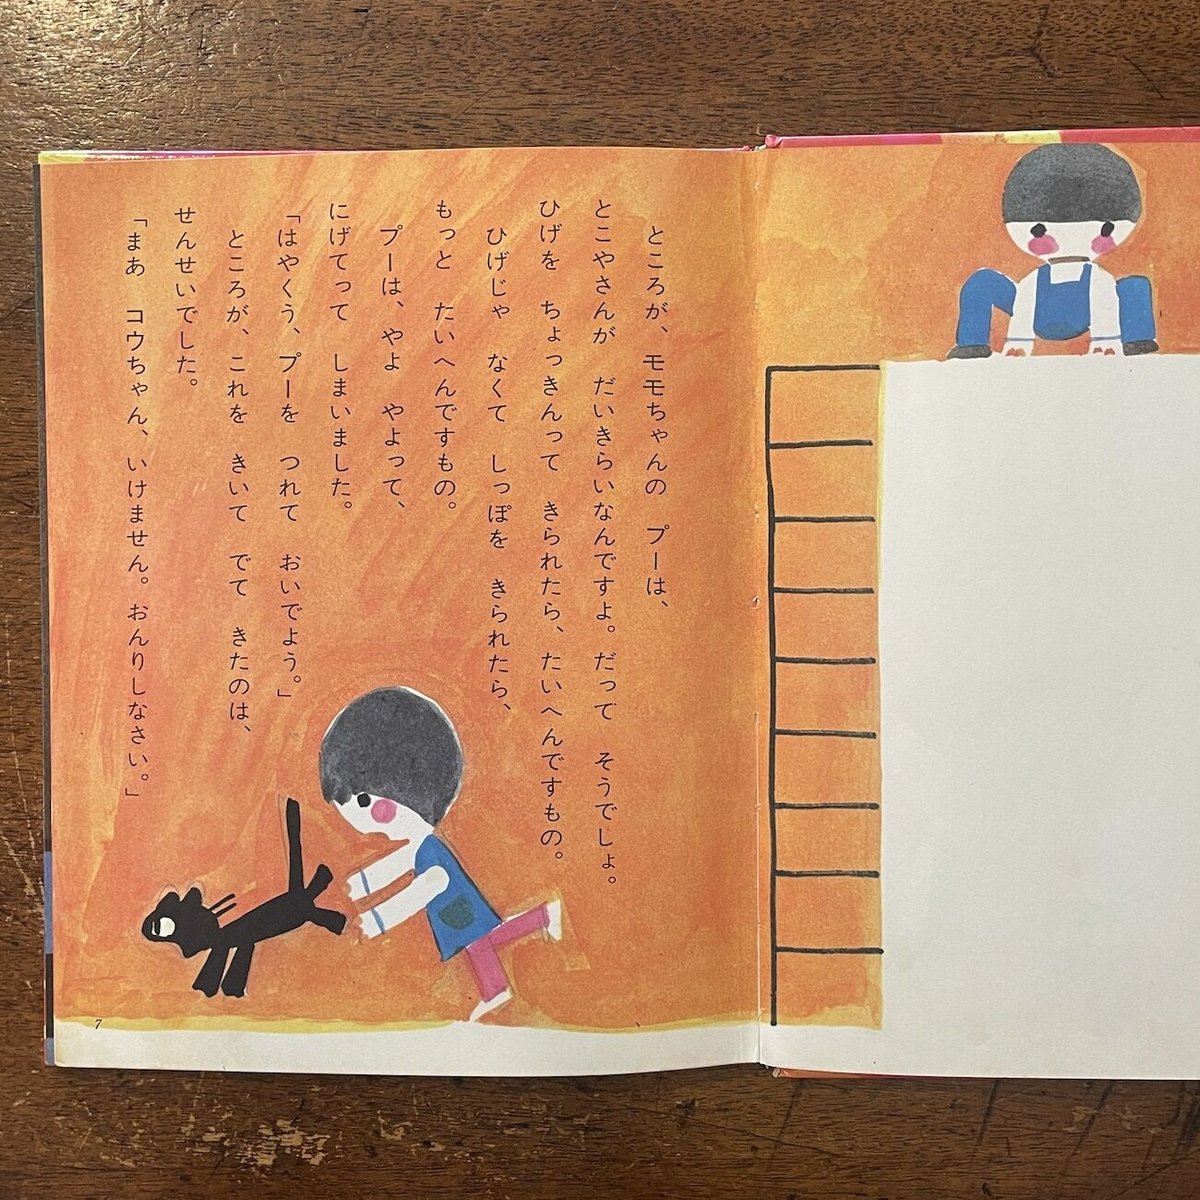 ところが、モモちゃんの プーは、
とこやさんが だいきらいなんですよ。だって そうでしょ。
ひげを ちょっきんって きられたら、たいへんですもの。
ひげじゃ なくて しっぽを きられたら、
もっと たいへんですもの。
プーは、やよ やよって、
にげてって しまいました。
「はやくう、プーを つれて おいでよう。」
ところが、これを きいて でて きたのは、
せんせいでした。
「まあ コウちゃん、いけません。おんりしなさい。」
7